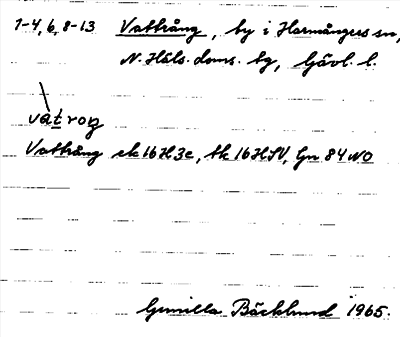 1-4, 6, 8-13 Vattrång, by i Harmångers sn,
N. Häls. doms. bg, Gävl. l.
vàtroŋ
Vattrång ek 16H3c, tk 16HSV, Gn 84 NO
Gunilla Bäcklund 1965.